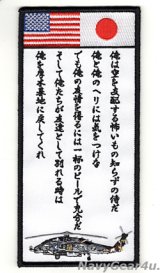 俺は空を支配する怖いもの知らずの侍だ
俺と俺のヘリには気をつけな
でも俺の友情を得るには一杯のビールで充分だ
そして俺たちが友達として別れる時は
俺を厚木基地に戻してくれ
NavyGear4u.